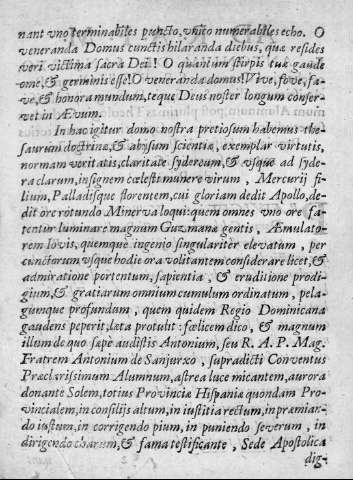 nant vno terminabiles puncto, vnico numerabiles echo. O
veneranda Domus cunctis hilaranda diebus, quæ resides
veri victima sacra Dei! O quantum stirpis tuæ gaude
ome, & germinis esse! O veneranda domus! Vive, fove, fa-
ve, & honora mundum, teque Deus noster longum conser-
vet in Ævum.
In hac igitur domo nostra pretiosum habemus the-
saurum doctrinæ, & abysum scientiæ, exemplar virtutis,
normam veritatis, claritate sydereum, & vsque ad syde-
ra clarum, insignem cœlesti munere virum, Mercurij fi-
lium, Palladisque florentem, cui gloriam dedit Apollo, de-
dit ore rotundo Minerva loqui: quem omnes vno ore fa-
tentur luminare magnum Guzmanæ gentis, Æmulato-
rem Iovis, quemque ingenio singulariter elevatum, per
cunctorum vsque hodie ora volitantem considerare licet, &
admiratione portentum, sapientia, & eruditione prodi-
gium, & gratiarum omnium cumulum ordinatum, pela-
gumque profundum, quem quidem Regio Dominicana
gaudens peperit, læta protulit: fœlicem dico, & magnum
illum de quo sæpè audistis Antonium, seu R. A. P. Mag.
Fratrem Antonium de Sanjurxo, supradicti Conventus
Præclarissimum Alumnum, astrea luce micantem, aurora
donante Solem, totius Provinciæ Hispaniæ quondam Pro-
vincialem, in consilijs altum, in iustitia rectum, in præmian-
do iustum, in corrigendo pium, in puniendo severum, in
dirigendo charum, & fama testificante, Sede Apostolica
dig-